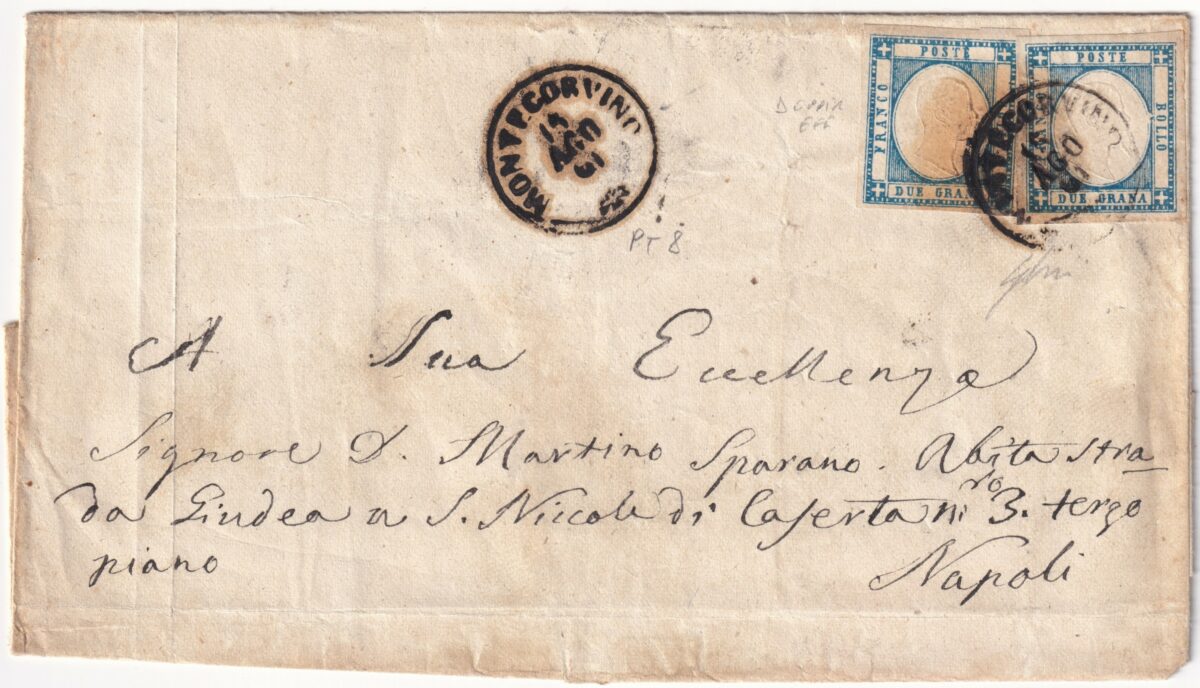 FRANCO POSTE DUE GRANA
POSTE BOLLO DUE GRANA
MONTECORVINO
14
AGO
61
MONTECORVINO
14
AGO
61
Doppia
Eff
PT 8
A Sua Eccellenza
Signore D. Martino Sparano. Abita stra-
da Giudea a S. Niccola di Caserta nro 3. terzo
piano Napoli